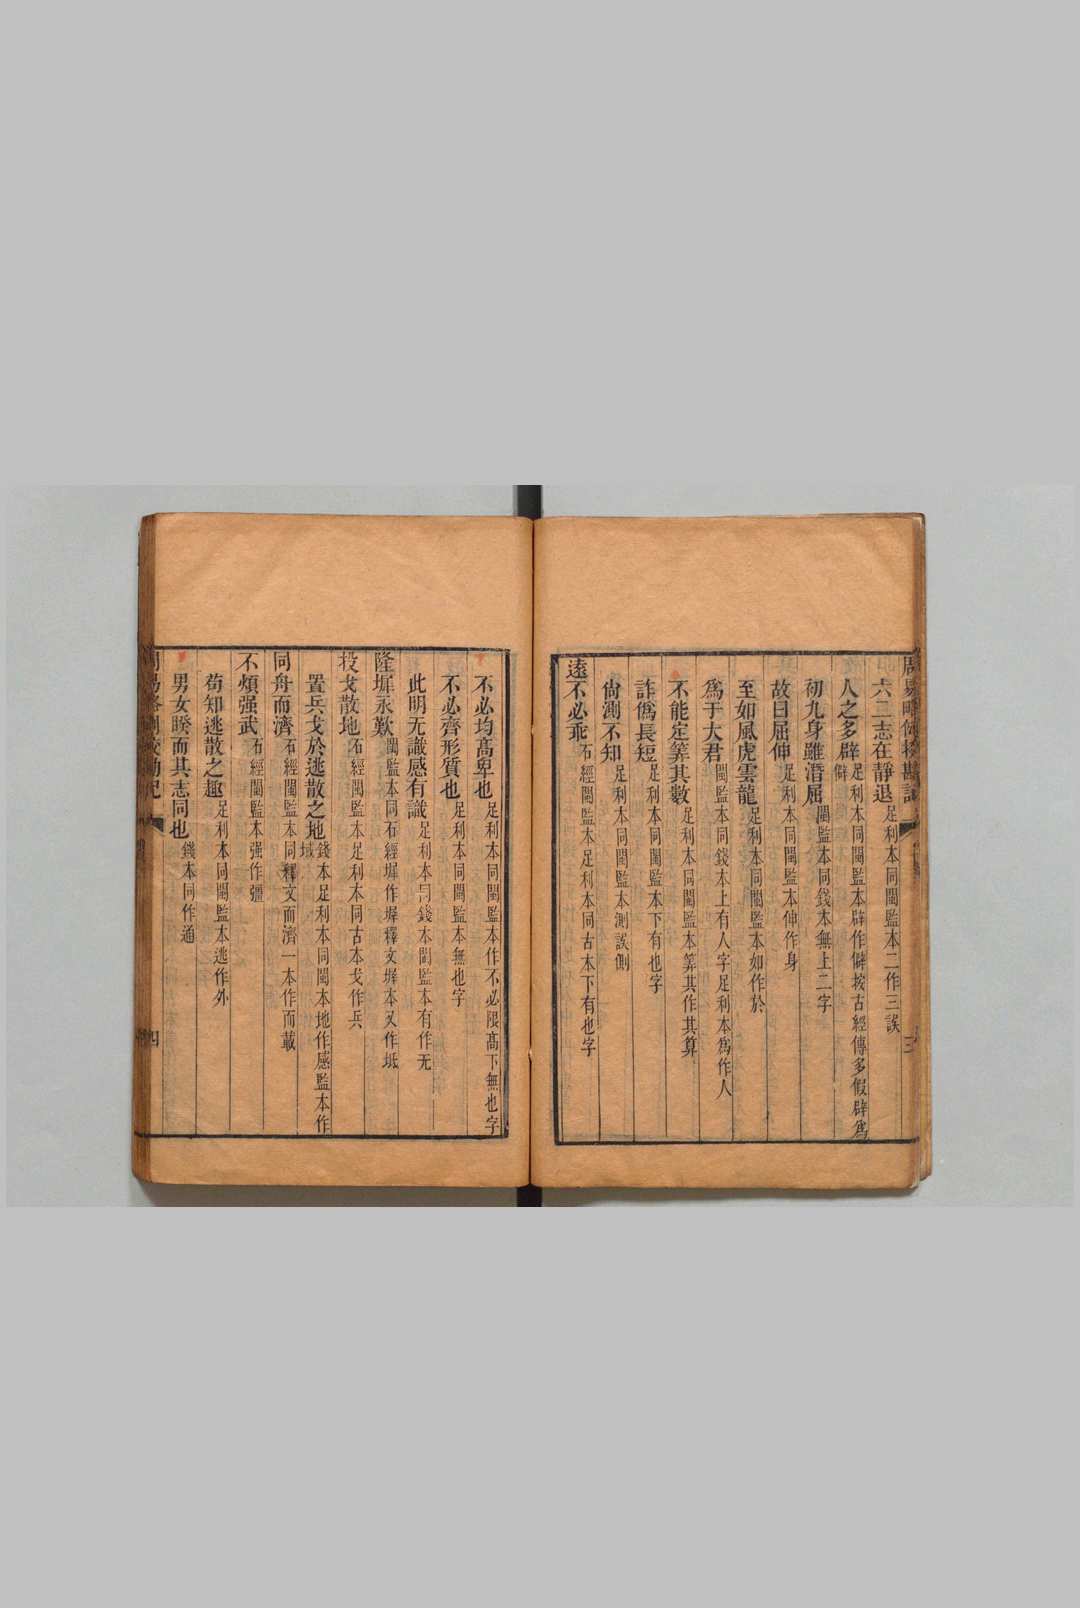 周易略例挍勘記
三
六二志在靜退足利本同閩監本二作三誤
人之多辟足利本同閩監本辟作僻按古經傳多假辟爲
僻
初九身雖潛屈閩監本同錢本無上二字
故曰屈伸足利本同閩監本伸作身
至如風虎雲龍足利本同閩監本如作於
爲于大君閩監本同錢本上有人字足利本爲作人
不能定筭其數足利本同閩監本筭其作其算
詐僞長短足利本同閩監本下有也字
尙測不知足利本同閩監本測誤側
遠不必乖石經閩監本足利本同古本下有也字
不必均高卑也足利本同閩監本作不必限高下無也字
不必齊形質也足利本同閩監本無也字
此明无識感有識足利本同錢本閩監本有作无
隆墀永歎閩監本同石經墀作墀釋文墀本又作坻
投戈散地石經閩監本足利本同古本戈作兵
置兵戈於逃散之地錢本足利本同閩本地作感監本作
域
同舟而濟石經閩監本同釋文而濟一本作而載
不煩强武石經閩監本强作彊
苟知逃散之趣足利本同閩監本逃作外
男女睽而其志同也錢本同作通
周易略例挍勘記
四